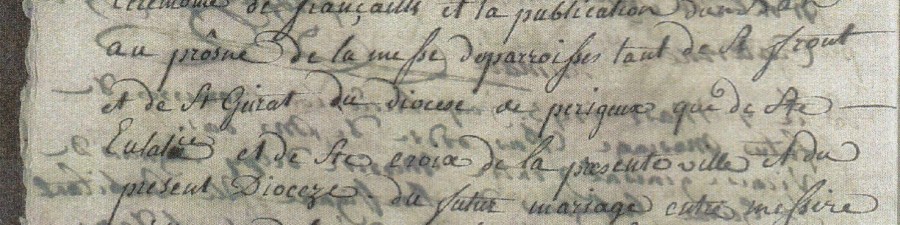 cérémonie de françaills et la publication
au prosne de la messe deparroisses tant de St front
et de St Girat du diocese de perigeux que de Ste
Eulalie et de Ste croix de la presente ville et du
present Dioceze du futur mariage entre messire